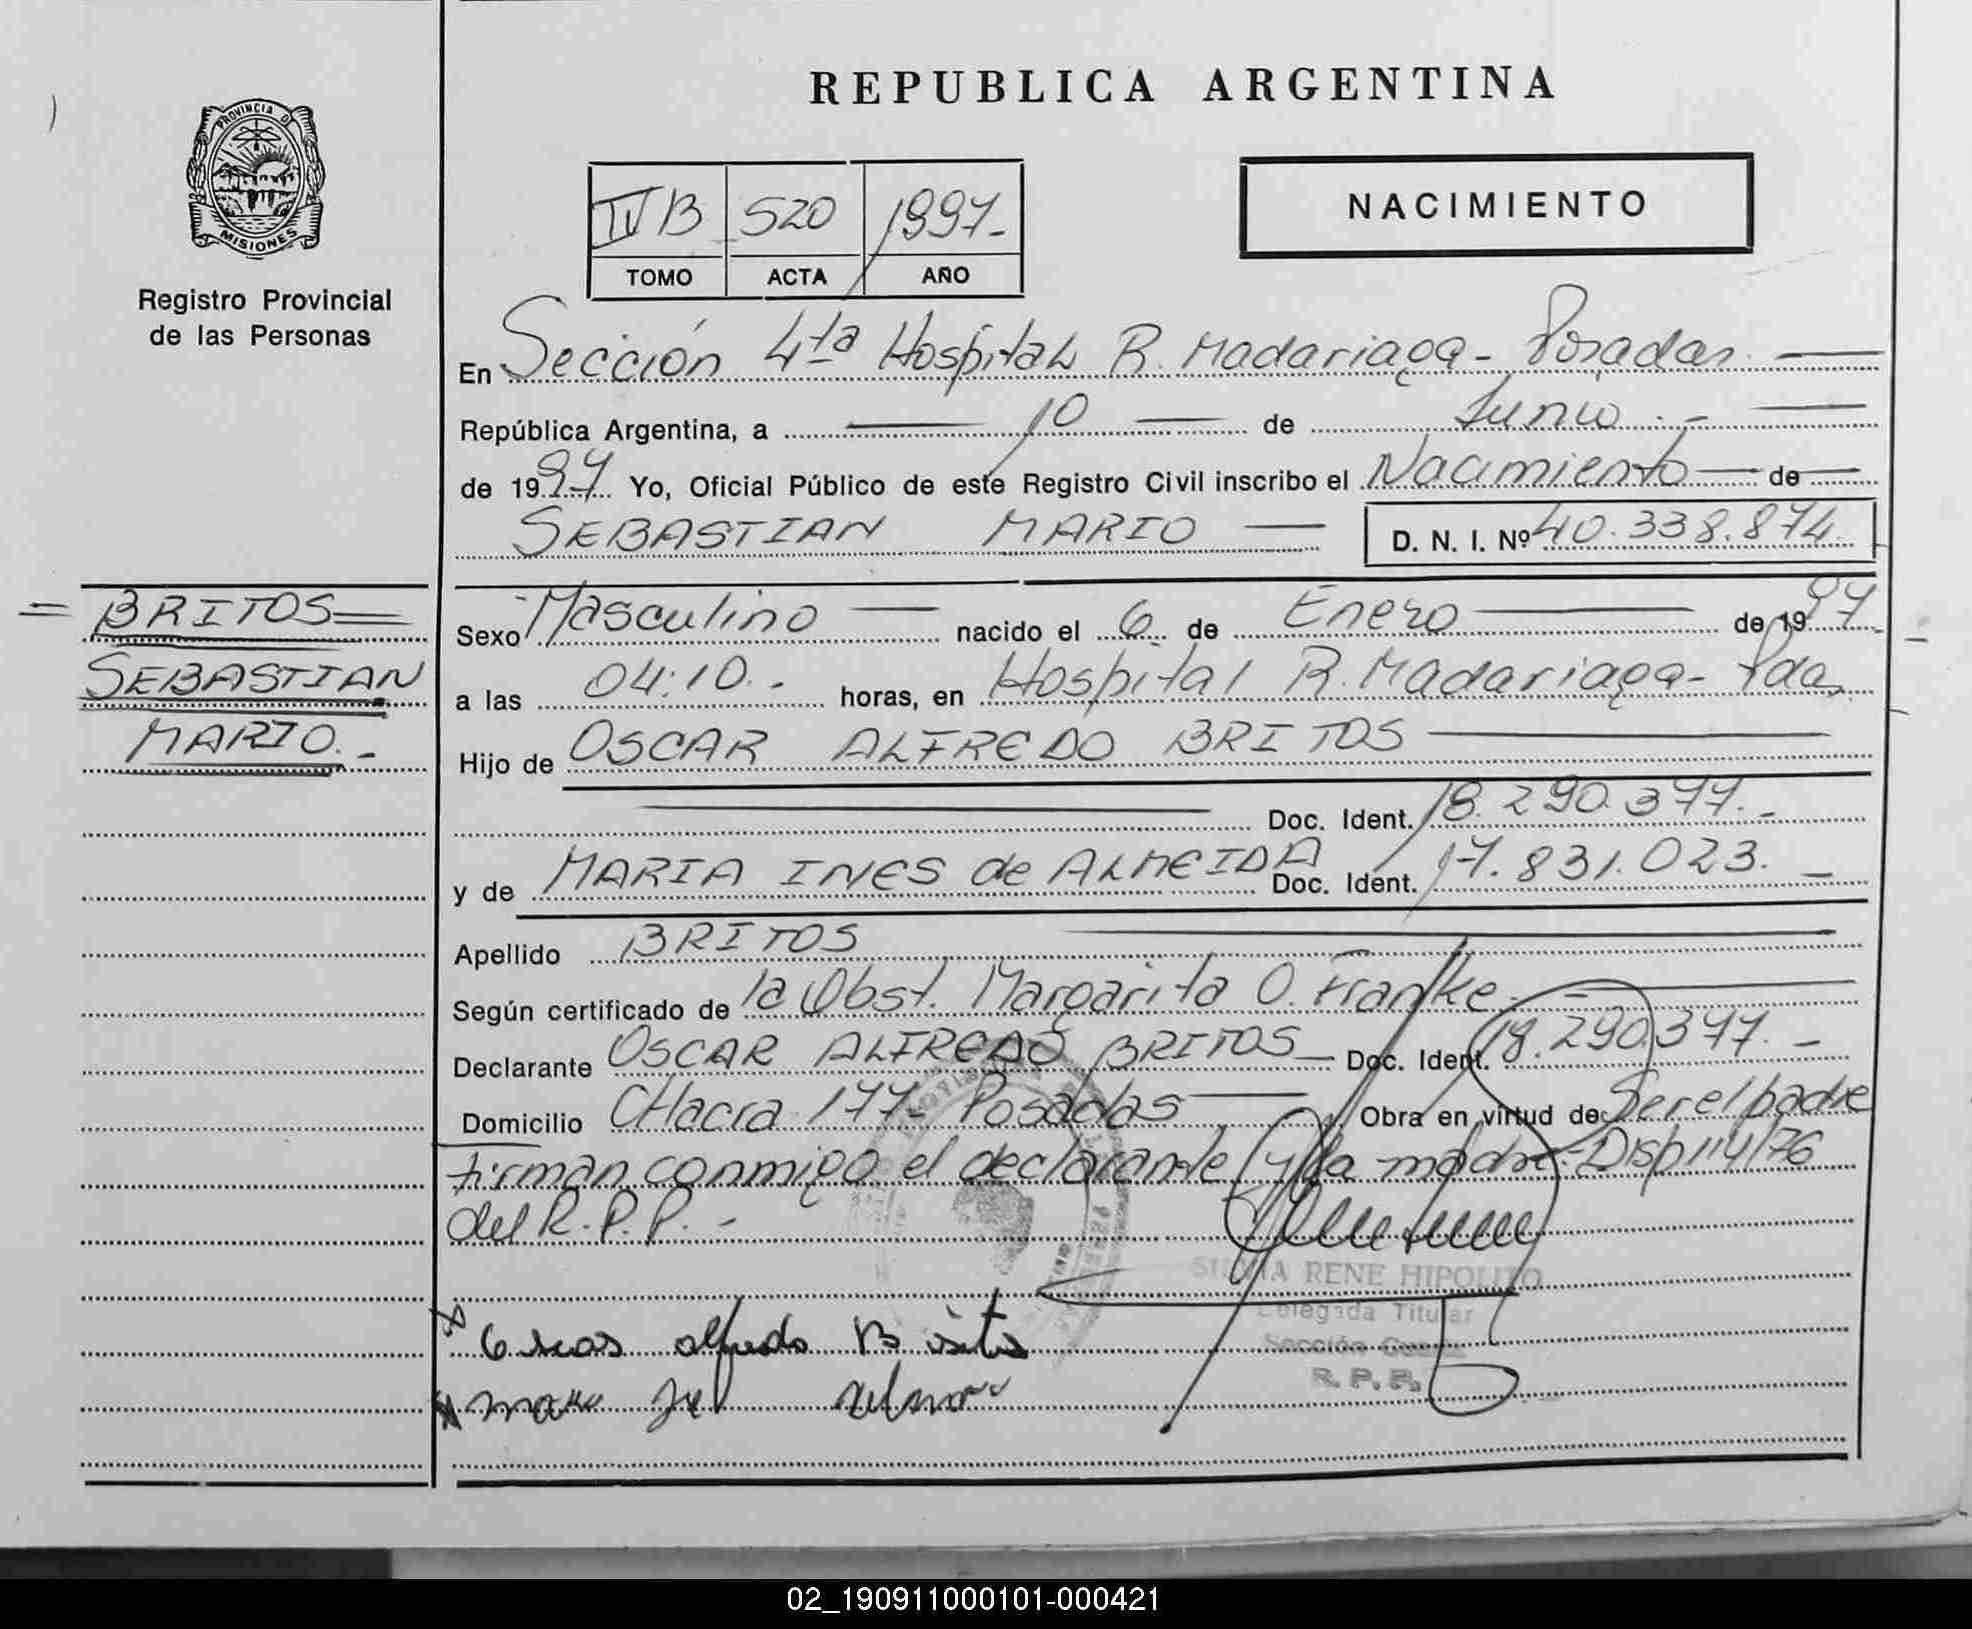 REPUBLICA ARGENTINA
PROVINCIA DE
MISIONES
Registro Provincial
de las Personas
IV B 520 1997.-
TOMO ACTA AÑO
NACIMIENTO
En Sección 4ta Hospital R. Madariaga - Posadas.
República Argentina, a 10 de Junio.-
de 1997 Yo, Oficial Público de este Registro Civil inscribo el Nacimiento de
SEBASTIAN MARIO D. N. I. Nº 40.338.874
= BRITOS =
SEBASTIAN
MARIO.-
Sexo Masculino nacido el 6 de Enero de 1997
a las 04:10.- horas, en Hospital R. Madariaga - Pdas
Hijo de OSCAR ALFREDO BRITOS
Doc. Ident. 18.290.377.-
y de MARIA INES de ALMEIDA Doc. Ident. 17.831.023.-
Apellido BRITOS
Según certificado de la Obst. Margarita O. Franke.-
Declarante OSCAR ALFREDO BRITOS Doc. Ident. 18.290.377.-
Domicilio CHacra 177- Posadas Obra en virtud de: Ser el padre
firman conmigo el declarante y la madre - Disp 114/76
del R.P.P.-
RENE HIPOLITO
Delegada Titular
Sección
R. P. P.
alfredo
02_190911000101-000421